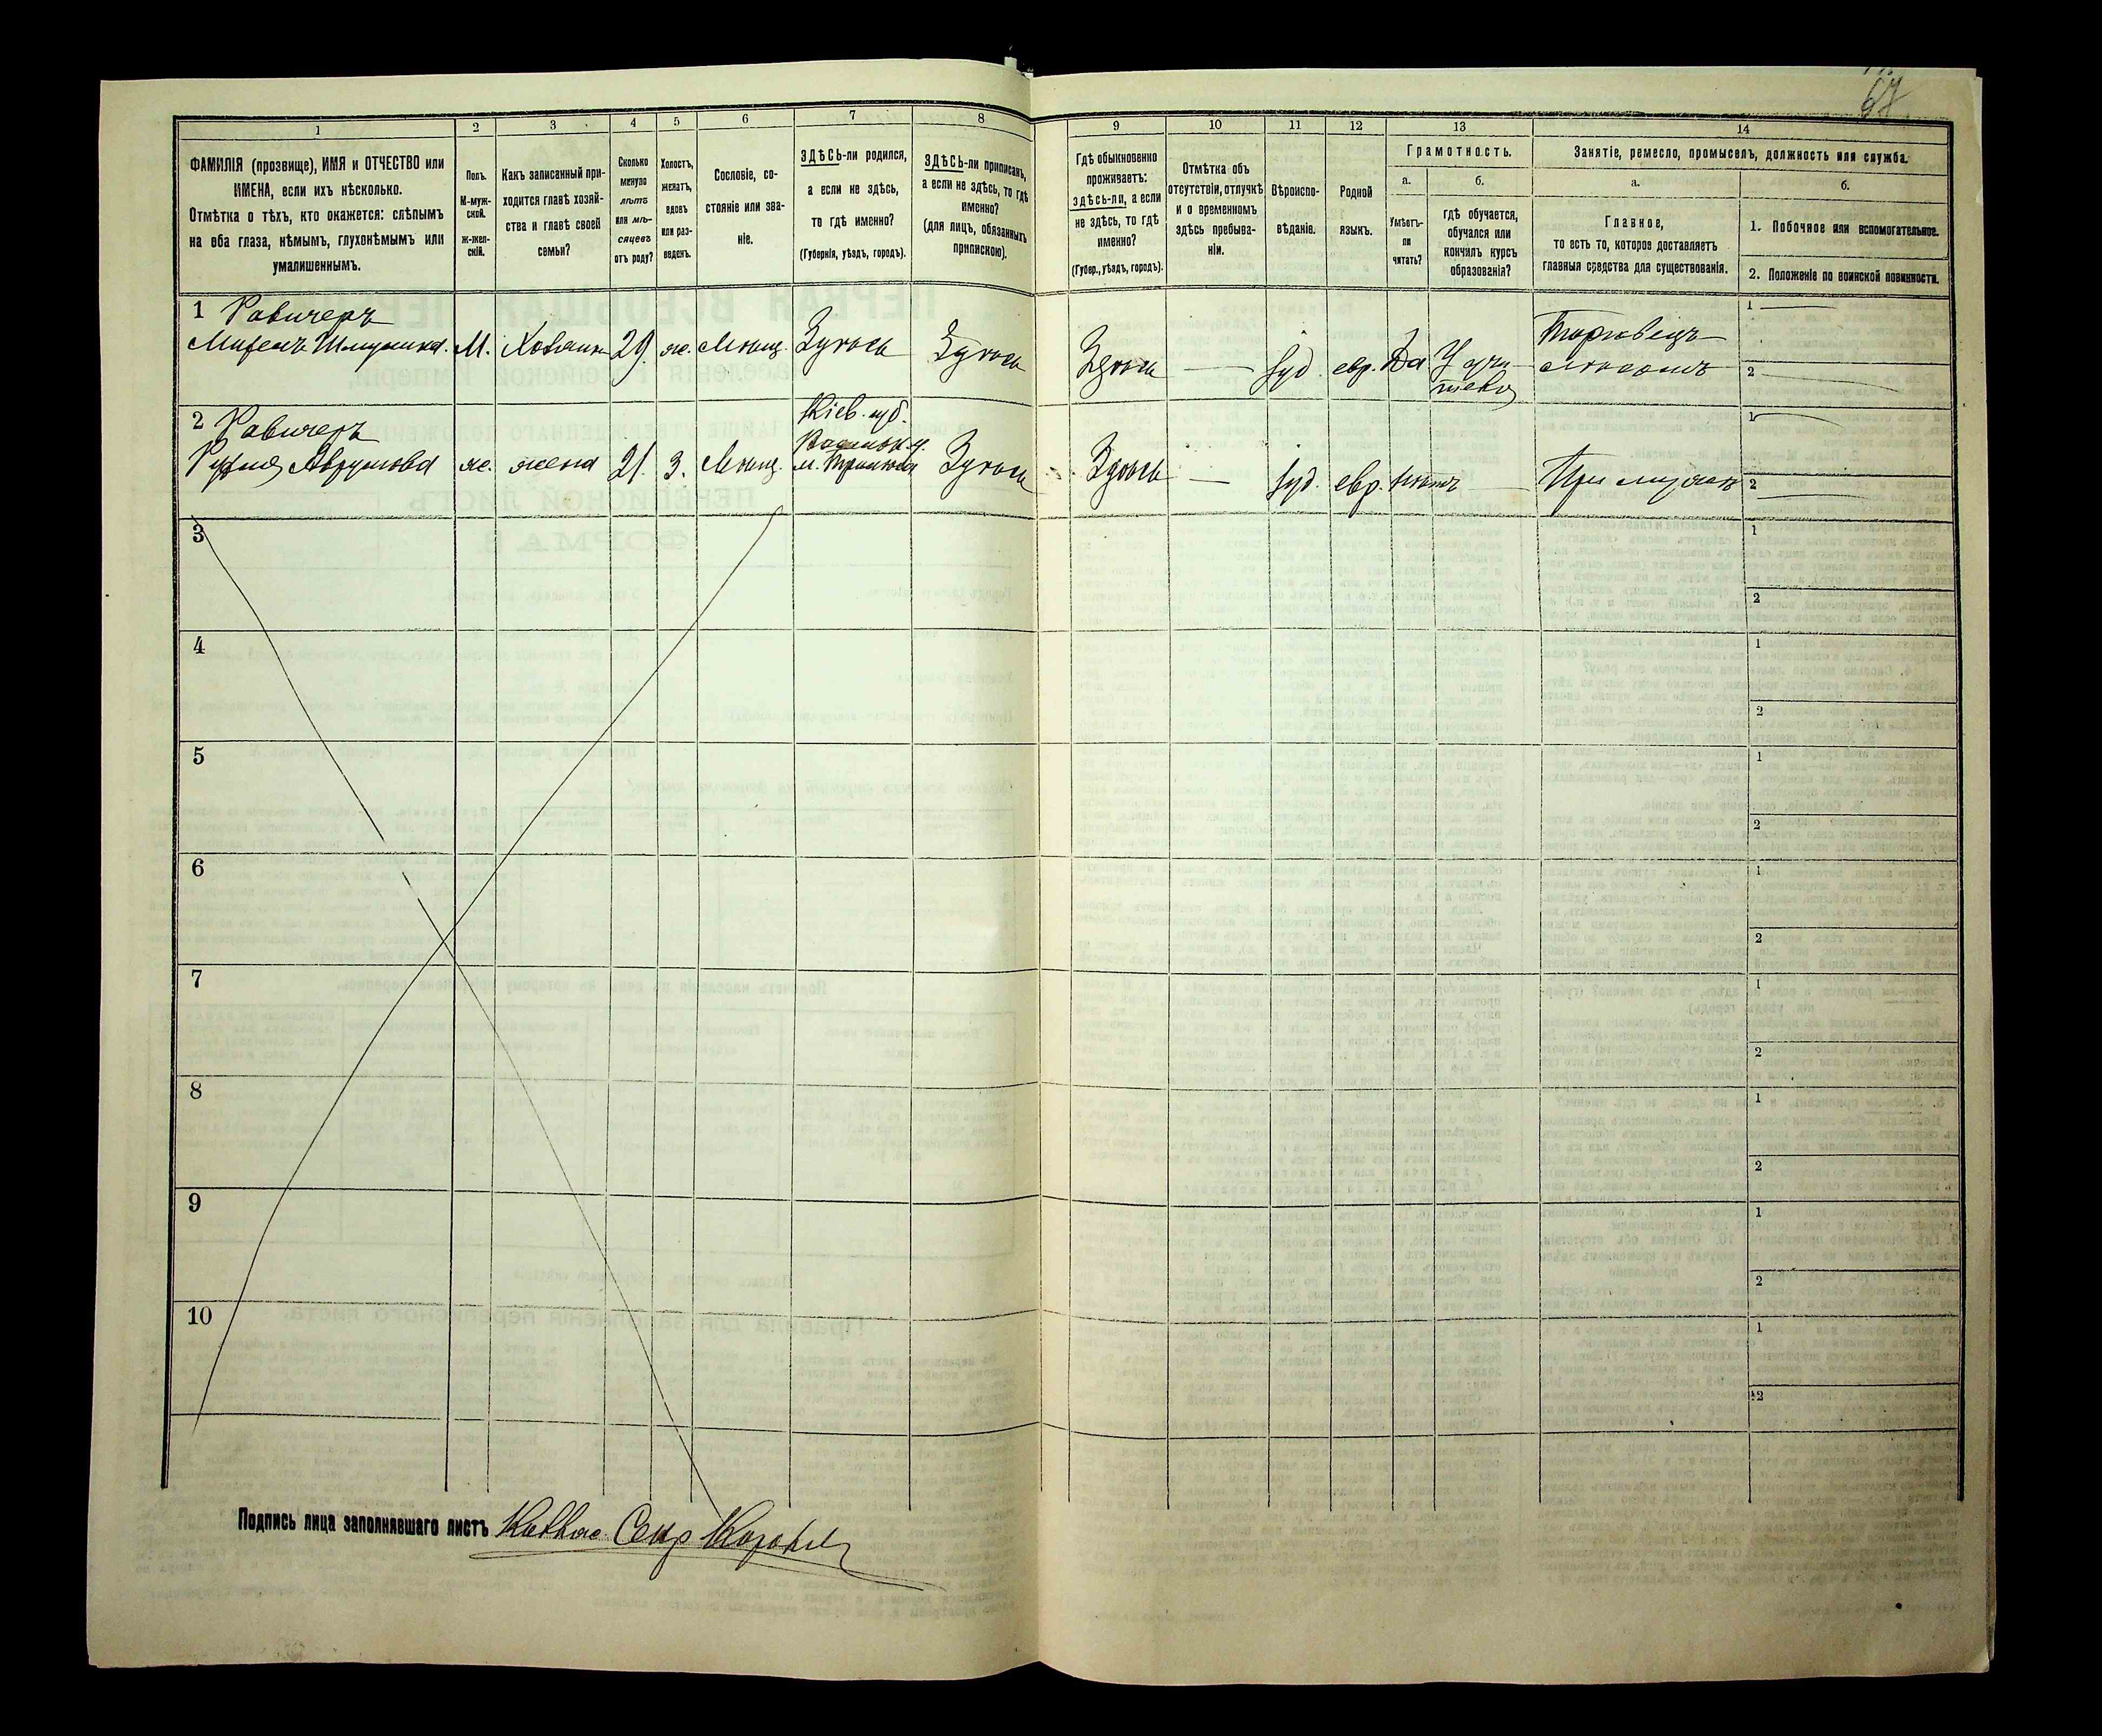 67
1 2 3 4 5 6 7 8 9 10 11 12 13 14
ФАМИЛІЯ (прозвище), ИМЯ и ОТЧЕСТВО или
ИМЕНА, если ихъ нѣсколько.
Отмѣтка о тѣхъ, кто окажется: слѣпымъ
на оба глаза, нѣмымъ, глухонѣмымъ или
умалишеннымъ.
Полъ.
М-муж-
ской.
Ж-жен-
скій.
Какъ записанный при-
ходится главѣ хозяй-
ства и главѣ своей
семьи?
Сколько
минуло
лѣтъ
или мѣ-
сяцевъ
отъ роду?
Холостъ,
женатъ,
вдовъ
или раз-
веденъ.
Сословіе, со-
стояніе или зва-
ніе.
ЗДѢСЬ-ли родился,
а если не здѣсь,
то гдѣ именно?
(Губернія, уѣздъ, городъ).
ЗДѢСЬ-ли приписанъ,
а если не здѣсь, то гдѣ
именно?
(для лицъ, обязанныхъ
припискою).
Гдѣ обыкновенно
проживаетъ:
здѣсь-ли, а если
не здѣсь, то гдѣ
именно?
(Губер., уѣздъ, городъ).
Отмѣтка объ
отсутствіи, отлучкѣ
и о временномъ
здѣсь пребыва-
ніи.
Вѣроиспо-
вѣданіе.
Родной
языкъ.
Грамотность.
а. б.
Умѣетъ-
ли
читать?
гдѣ обучается,
обучался или
кончилъ курсъ
образованія?
Занятіе, ремесло, промыселъ, должность или служба.
а. б.
Главное,
то есть то, которое доставляетъ
главныя средства для существованія.
1. Побочное или вспомогательное.
2. Положеніе по воинской повинности.
1 Равичеръ
Шмулиха. М. Хозяинъ 29 ж. Мѣщ. Здѣсь Здѣсь Здѣсь — Іуд. евр. Да У учи-
теля
Торговецъ
1
2
2 Равичеръ
Аврумова ж. жена 21. З. Мѣщ.
Кіев. губ.
м.
Здѣсь Здѣсь — Іуд. евр. нѣтъ — При мужѣ
1
2
3
1
2
4
1
2
5
1
2
6
1
2
7
1
2
8
1
2
9
1
2
10
1
2
Подпись лица заполнявшаго листъ